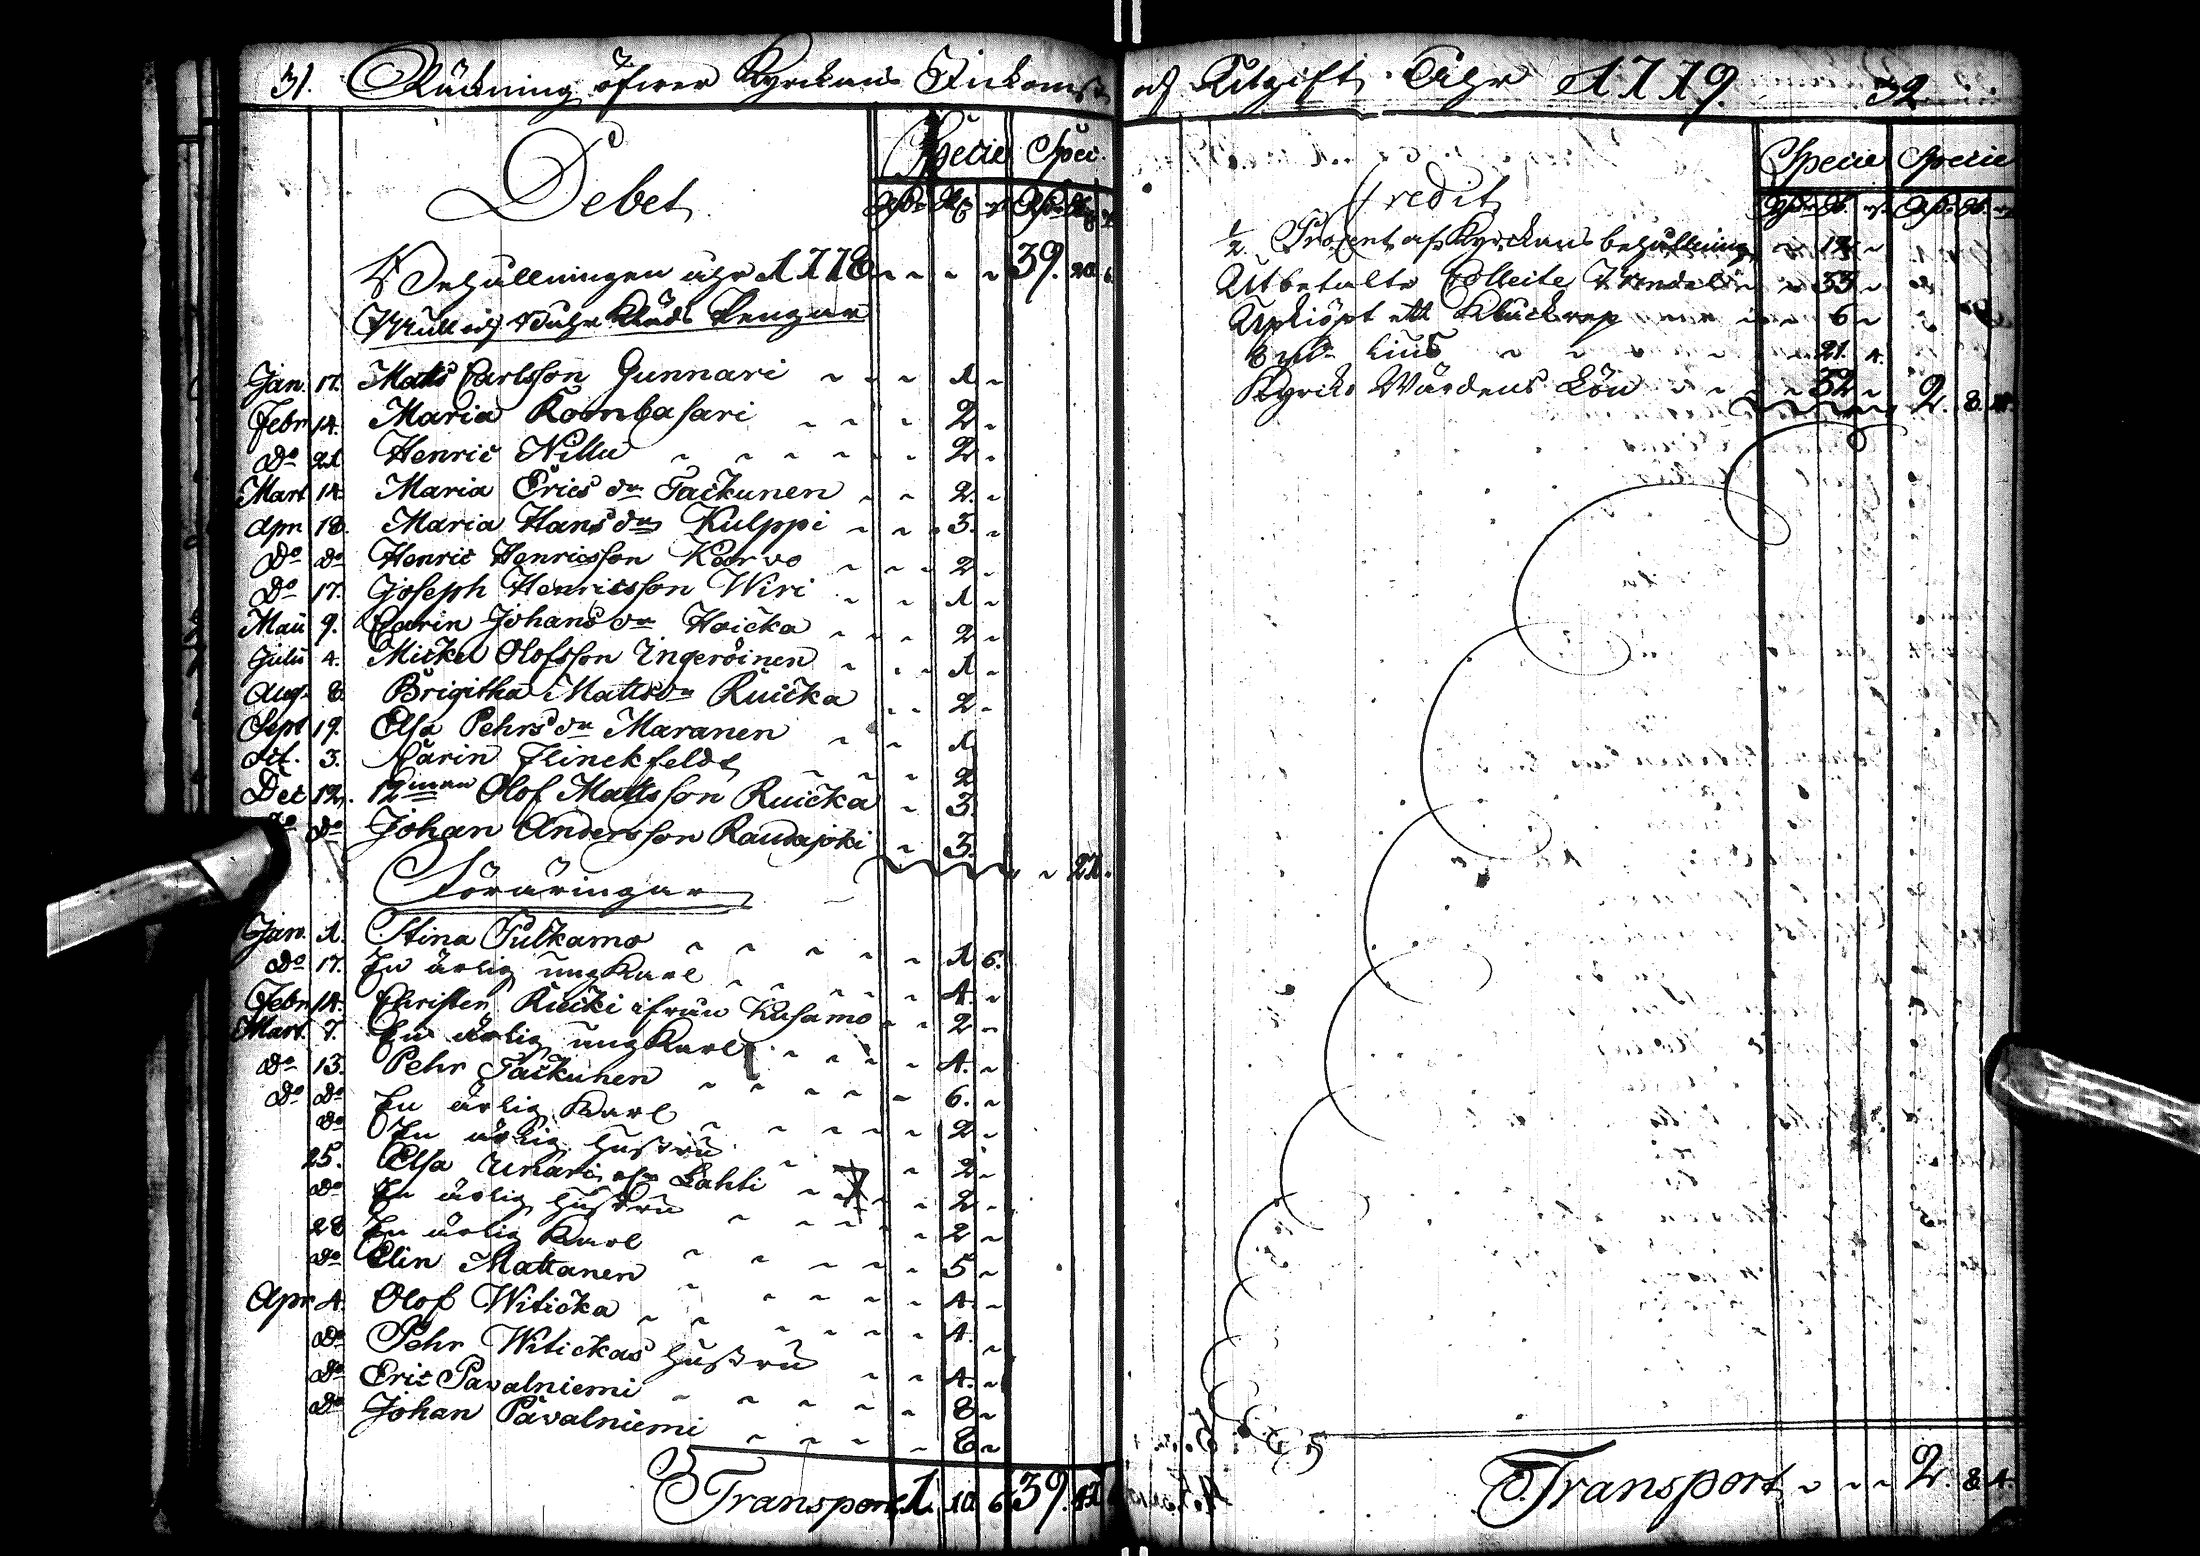 31. Räckning öfwer Kyrckans Inkomst
Debet
Specie Speci.
Rd. sk. r. Rd. sk. r.
Behållningen åhr 1778 39. 20 6
Mull och Bahr Kläds Pengar
Jan. 17. Mats Carlsson Gunnari 1
Febr 14. Maria Koonbasari 2
Do 21 Henric Nilla 2
Mart 14. Maria Erics dr Tackunen 2.
Apr. 18. Maria Hans dr Kulppi 3.
Do Do Henric Henricsson Korvo 2
Do 17. Joseph Henricsson Wiri 1
Maii 9. Carin Johans dr Hoicka 2
Julii 4. Mickel Olofsson Ingeröinen 1
Aug. 8. Brigitha Matts dr Ruicka 2
Sept 19. Elsa Pehrs dr Maranen 1
Oct. 3. Karin Flinckfeldt 2
Dec 12. 12man Olof Mattsson Ruicka 3
Do Do Johan Andersson Raudajoki 3. 27.
Föräringar
Jan. 1. Stina Pulkamo 1 6.
Do 17. En ärlig ung Karl 4.
Febr 14. Christen Ruicki ifrån Kusamo 2
Mart. 7. En ärlig ung Karl 4.
Do 13. Pehr Tackunen 6.
Do Do En ärlig Karl 2
Do En ärlig Hustru 2
25. Elsa Unari Lahti 2
Do En ärlig Hustru 2
28 En ärlig Karl 5
Do Elin Mattanen 4.
Apr 4. Olof Witicka 4.
Do Pehr Witickas Hustru 4.
Do Eric Pavalniemi 8
Do Johan Pavalniemi 8
Transport 1. 10 6 39. 47
och Utgift Åhr 1779. 32
Credit
Specie Specie
Rd. sk. r. Rd. sk. r.
1/2 Procent af Kyrckans behållning
Utbetalte Collecte 33
Upkiöpt ett Klåckrep 6
8 Lius 21. 4.
Kyrcko Wärdens Lön 32 2. 8. 4.
Transport 2. 8 4.